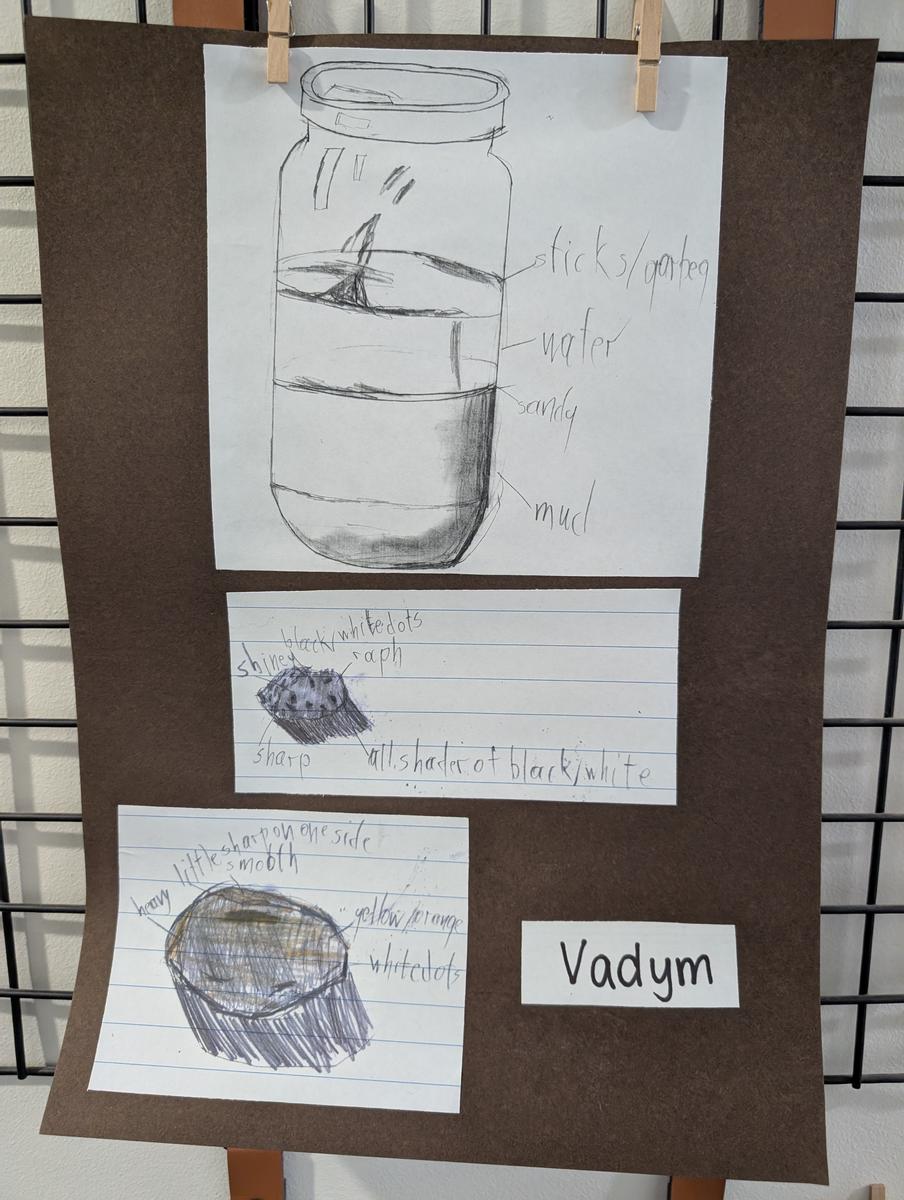 sticks/garbeg
water
sandy
mud
black/whitedots
shiney
raph
sharp
all.shader of black/white
little sharp on one side
smooth
heavy
yellow/orange
whitedots
Vadym